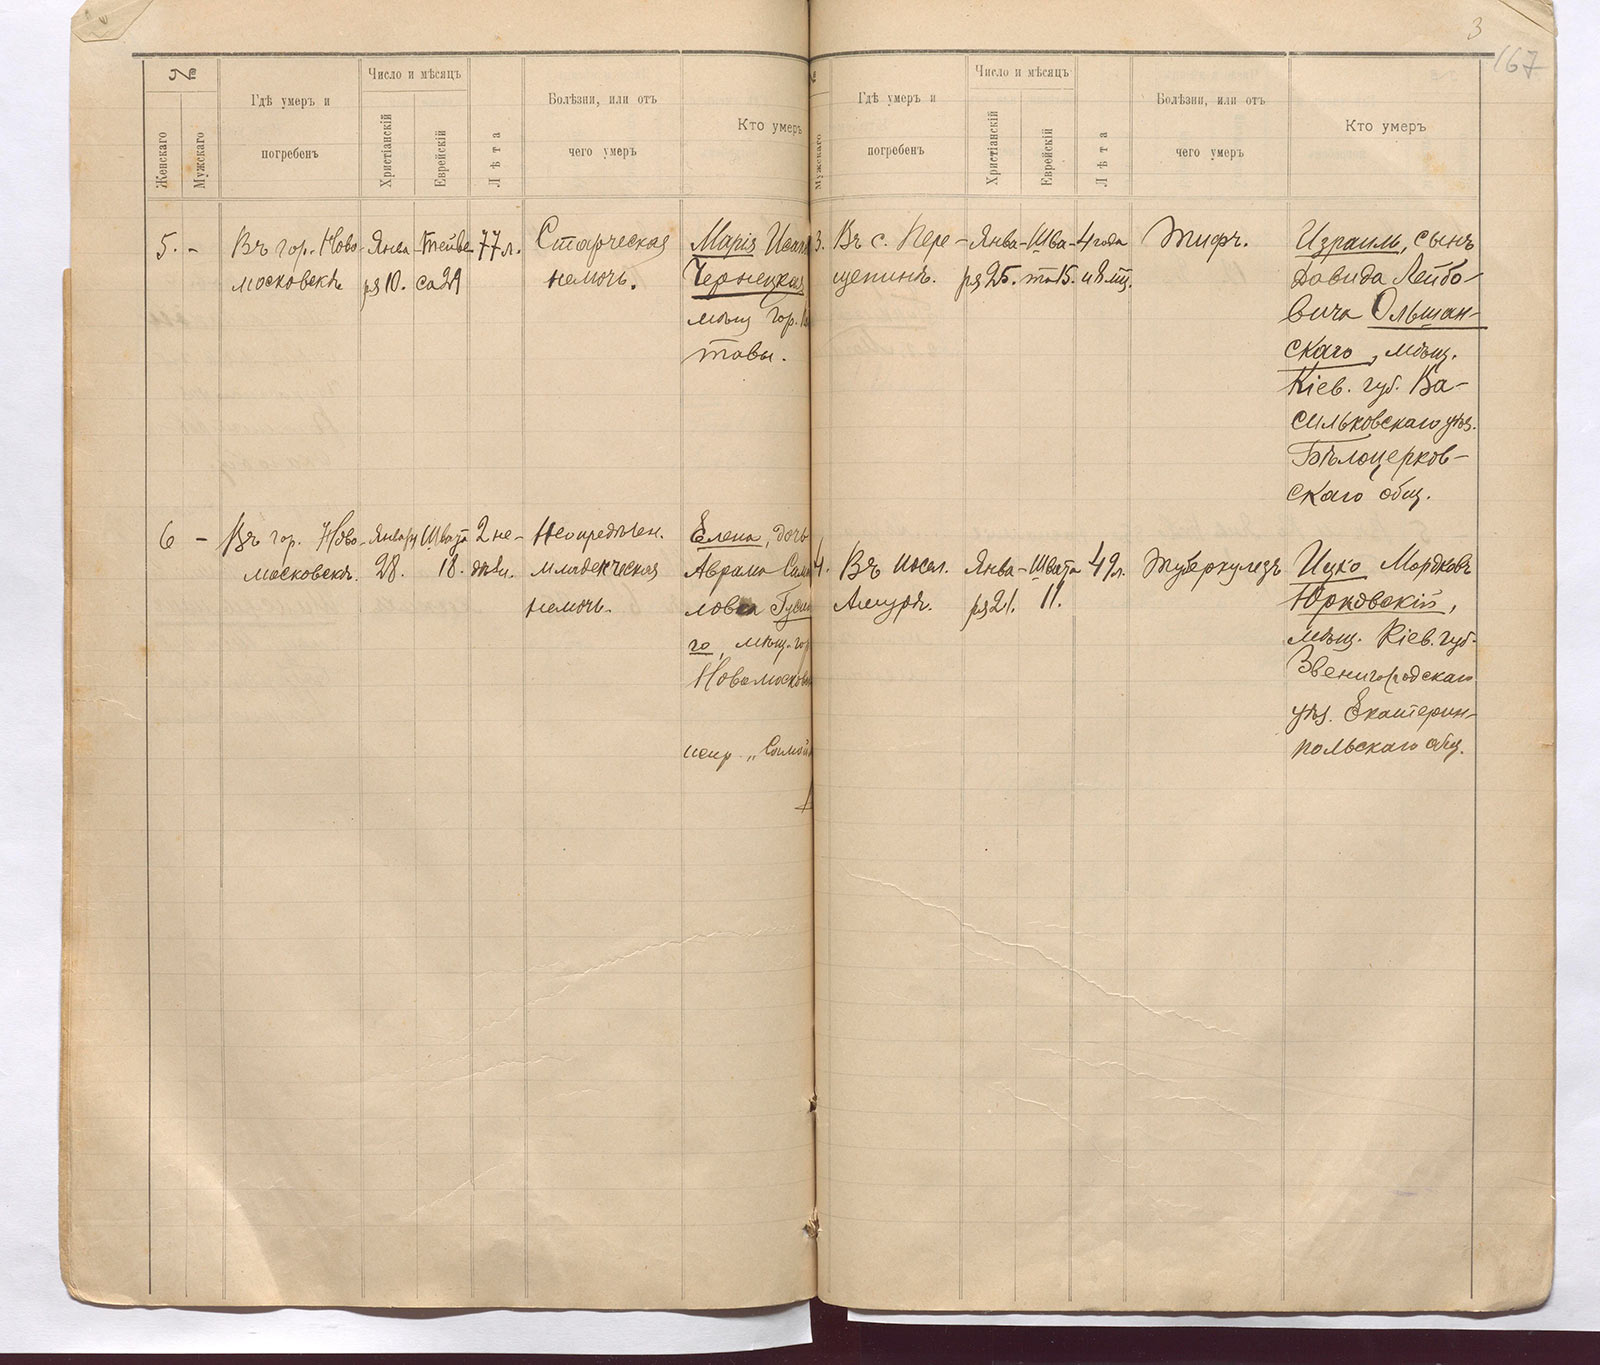 3
167
№
Женскаго
Мужскаго
Гдѣ умеръ и
погребенъ
Число и мѣсяцъ
Христіанскій
Еврейскій
Лѣта
Болѣзни, или отъ
чего умеръ
Кто умеръ
5. -
Въ гор. Ново-
московскѣ
Янва-
ря 10.
Тейве-
са 29
77 л.
Старческая
немочь.
Марія
Чернецкая
мѣщ. гор.
тавы.
6 -
Въ гор. Ново-
московскѣ.
Январ
28.
Швата
18.
2 не-
дѣли.
Неопредѣлен.
младенческая
немочь.
Елена, дочь
Абрама
го, мѣщ. гор
Новомосков
испр. „Самой
Мужскаго
Гдѣ умеръ и
погребенъ
Число и мѣсяцъ
Христіанскій
Еврейскій
Лѣта
Болѣзни, или отъ
чего умеръ
Кто умеръ
3.
Въ с. Пере-
щепинѣ.
Янва-
ря 25.
Шва-
та 15.
4 года
и 8 мѣс.
Тифъ.
Израиль, сынъ
Давида Лейбо-
вича Ольшан-
скаго, мѣщ.
Кіев. губ. Ва-
сильковскаго уѣз.
Бѣлоцерков-
скаго общ.
4.
Въ посел.
Амурѣ.
Янва-
ря 21.
Швата
11.
49 л.
Туберкулезъ
Ицко Мордковъ
Юрковскій,
мѣщ. Кіев. губ.
Звенигородскаго
уѣз. Екатерин-
польскаго общ.